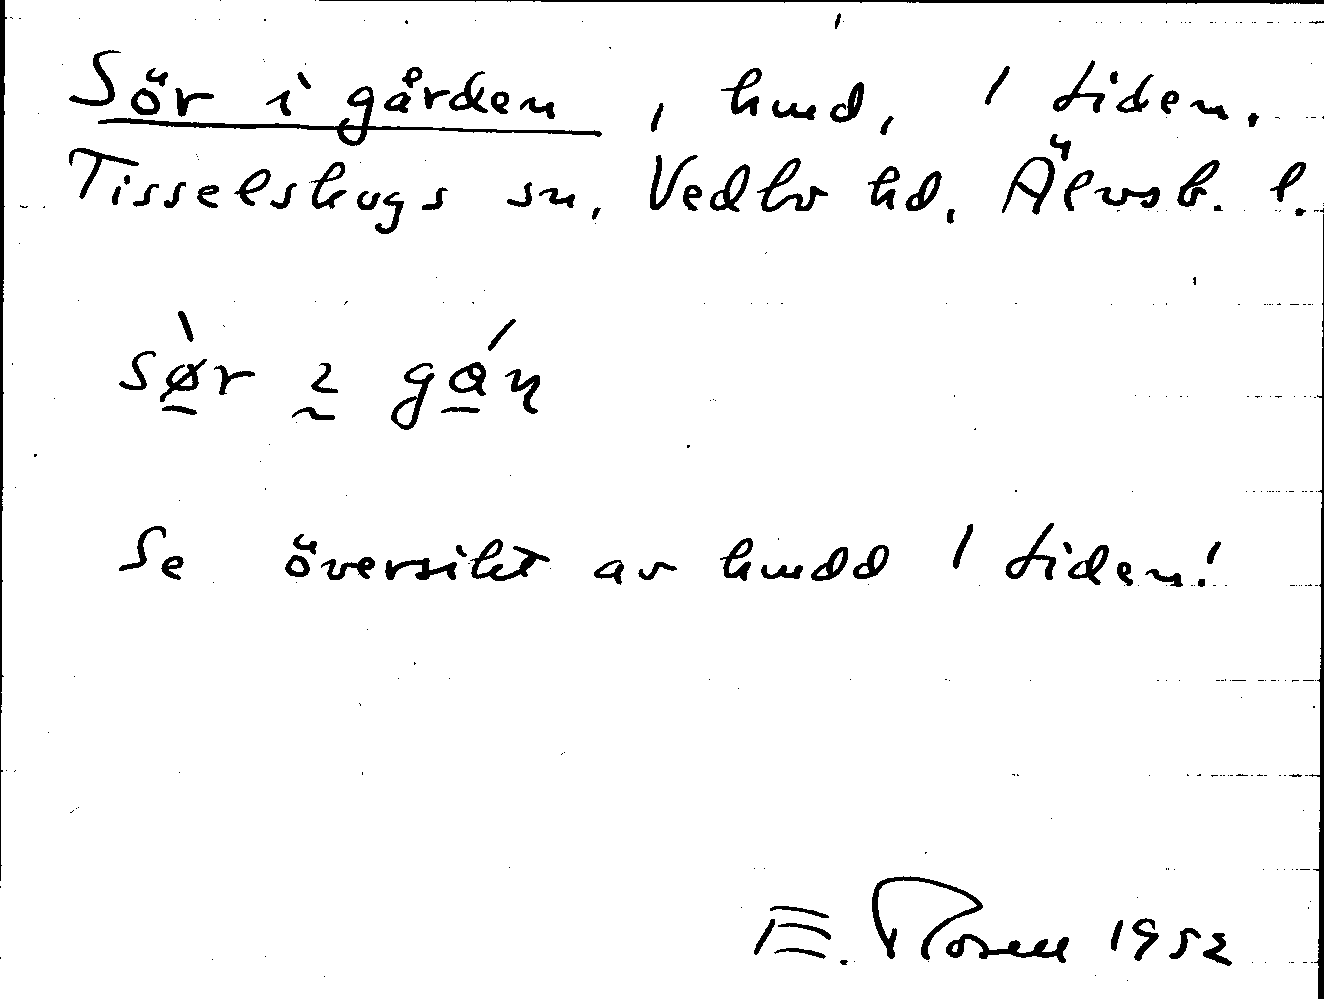 Sör i gården, hmd, 1 tiden.
Tisselskogs sn, Vedbo hd, Älvsb. l.
sø̀r ı gán
Se översikt av hmdd 1 tiden!
E. Rosell 1952